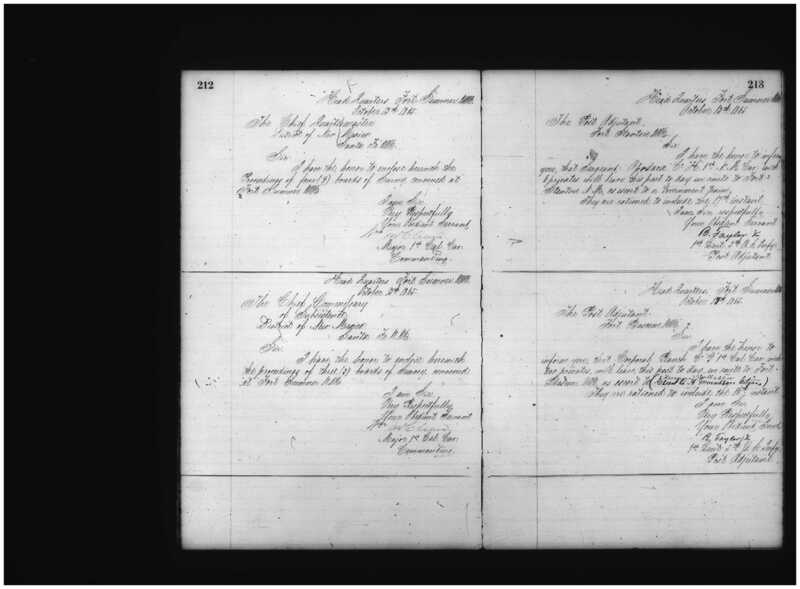 212
Head Quarters Fort Sumner N.M.
October 12th 1865
The Chief Quartermaster
District of New Mexico
Santa Fe N.M.
Sir
I have the honor to enclose herewith the
Proceedings of four (4) boards of Survey convened at
Fort Sumner N.M.
I am Sir
Very Respectfully
Your Obedient Servant
Major 1st Cal. Cav.
Commanding.
Head Quarters Fort Sumner N.M.
October 12th 1865
The Chief Commissary
of Subsistence
District of New Mexico
Santa Fe N.M.
Sir
I have the honor to enclose herewith
the proceedings of three (3) boards of Survey, convened
at Fort Sumner N.M.
I am Sir
Very Respectfully
Your Obedient Servant
Major 1st Cal. Cav.
Commanding.
213
Head Quarters Fort Sumner N.M.
October 1865
The Post Adjutant.
Fort Stanton N.M.
Sir
I have the honor to inform
you, that Sergeant Co. H. 1st N.M. Cav. with
privates will leave this post to day en route to Fort
Stanton N.M. as escort to a Government train.
They are rationed to include the 17th instant.
I am Sir, respectfully,
Your Obedient Servant
B. Taylor
1st Lieut. 5th U.S. Infy.
Post Adjutant.
Head Quarters Fort Sumner N.M.
October 1865
The Post Adjutant.
Fort Bascom N.M.
Sir
I have the honor to
inform you, that Corporal 1st Cal. Cav. with
privates, will leave this post to day, en route to Fort
N.M. as escort to
They are rationed to include the instant
I am Sir
Very Respectfully
Your Obedient Servt.
B. Taylor
1st Lieut. 5th U.S. Infy.
Post Adjutant